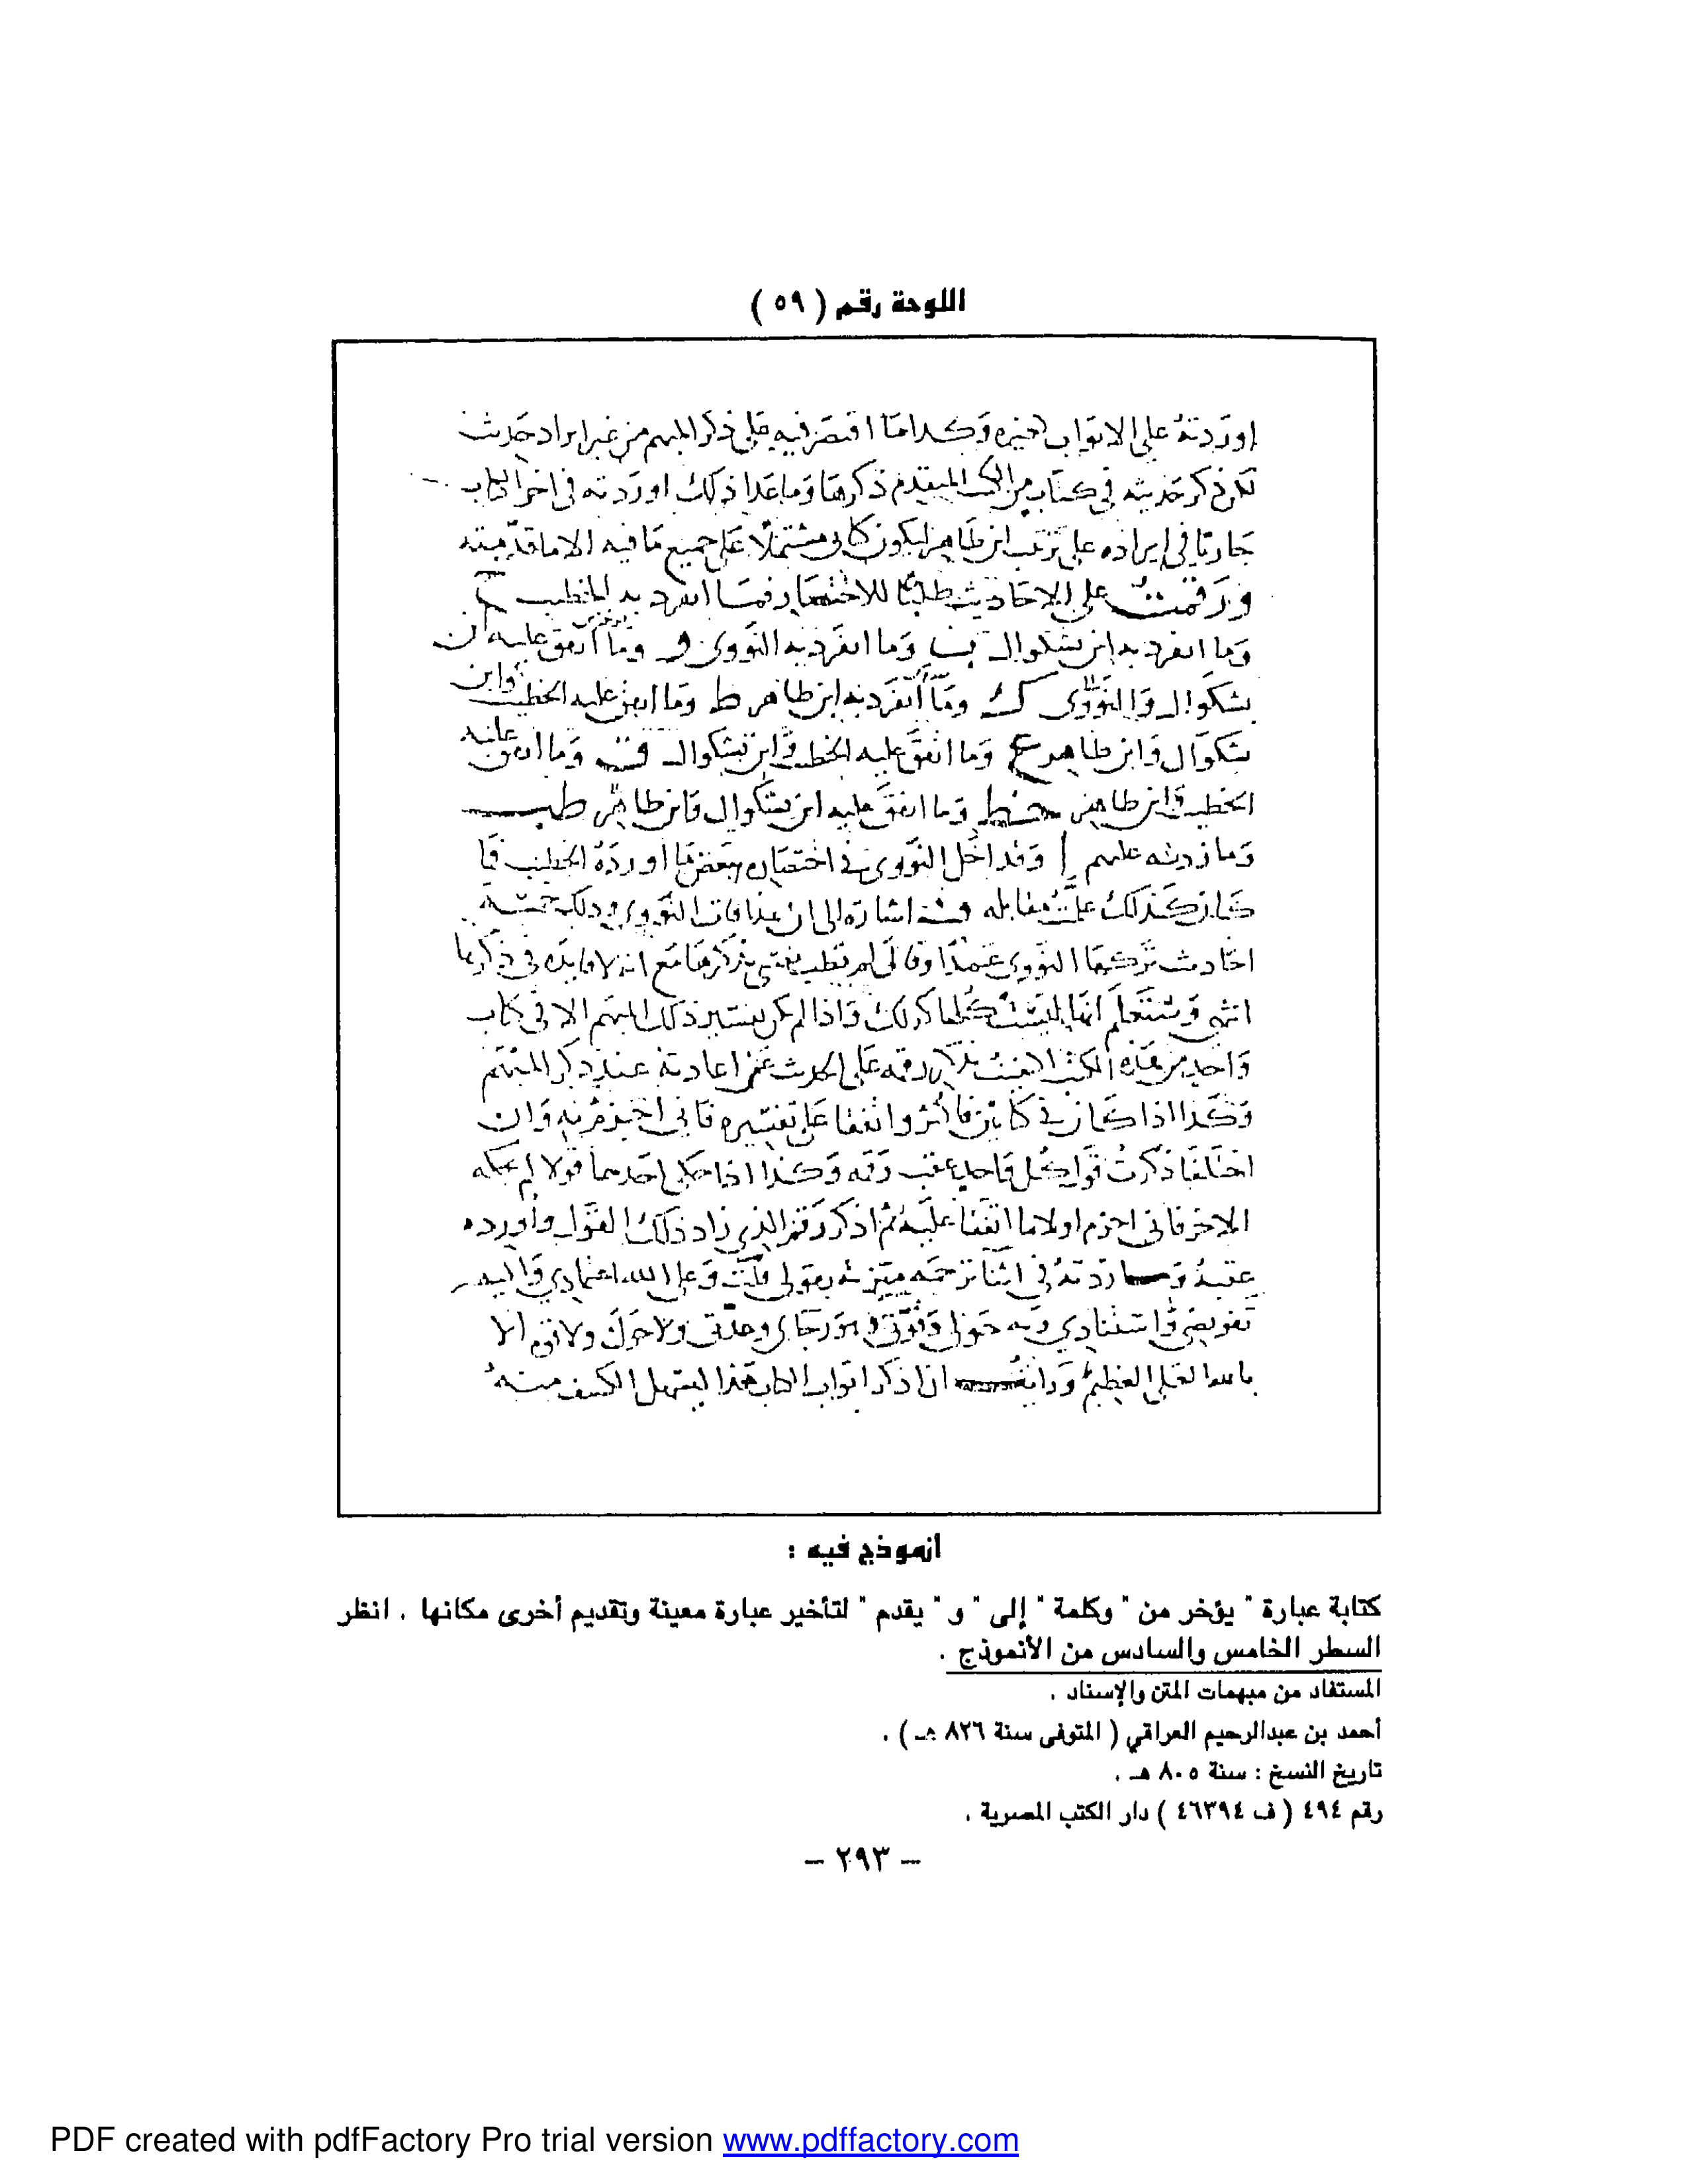 اللوحة رقم ( ٥٩ )
اوردته على الابواب وكذا ما اقتصر فيه على ذكر المبهم من غير ايراد حديث
لكن ذكر حديثه في كتاب من الكتب المتقدم ذكرها وما عدا ذلك اوردته في اخر الكتاب
جاريا في ايراده على ترتيب ابن طاهر ليكون كتابي مشتملا على جميع ما فيه الا ما قدمته
ورقمت على الاحاديث طلبا للاختصار فما انفرد به الخطيب خ
وما انفرد به ابن بشكوال ب وما انفرد به النووي و وما اتفق عليه ابن
بشكوال والنووي ك وما انفرد به ابن طاهر ط وما اتفق عليه الخطيب وابن
بشكوال وابن طاهر ع وما اتفق عليه الخطيب وابن بشكوال وما اتفق عليه
الخطيب وابن طاهر خط وما اتفق عليه ابن بشكوال وابن طاهر طب
وما زدته عليهم ا وقد اخل النووي في اختصاره ببعض ما اورده الخطيب فما
كان كذلك علمت مقابله اشارة الى ان هذا فات النووي وذلك خمسة
احاديث تركها النووي عمدا وقال لم تطب نفسي بذكرها مع انه لا فايدة في ذكرها
انتهى وستعلم انها ليست كلها كذلك واذا لم يكن تفسير ذلك المبهم الا في كتاب
واحد من هذه الكتب اكتفيت بذكر رقمه على الحديث عن اعادته عند ذكر المبهم
وكذا اذا كان في كتابين فاكثر واتفقا على تفسيره فاني اجزم به وان
اختلفا ذكرت قول كل واحد عقب رقمه وكذا اذا حكى احدهما قولا لم يحكه
الاخر فاني اجزم اولا بما اتفقا عليه ثم اذكر رقم الذي زاد ذلك القول واورده
عقبه وما زدته في اثنا ترجمة ميزته بقولي قلت وعلى الله اعتمادي واليه
تفويضي واستنادي وبه حولي وقوتي وهو رجاي وعدتي ولا حول ولا قوة الا
بالله العلي العظيم ورايت ان اذكر ابواب الكتاب هذا ليسهل الكشف منه
أنموذج فيه :
كتابة عبارة " يؤخر من " وكلمة " إلى " و " يقدم " لتأخير عبارة معينة وتقديم أخرى مكانها . انظر
السطر الخامس والسادس من الأنموذج .
المستفاد من مبهمات المتن والإسناد .
أحمد بن عبدالرحيم العراقي ( المتوفى سنة ٨٢٦ هـ ) .
تاريخ النسخ : سنة ٨٠٥ هـ .
رقم ٤٩٤ ( ف ٤٦٣٩٤ ) دار الكتب المصرية .
– ٢٩٣ –
PDF created with pdfFactory Pro trial version www.pdffactory.com